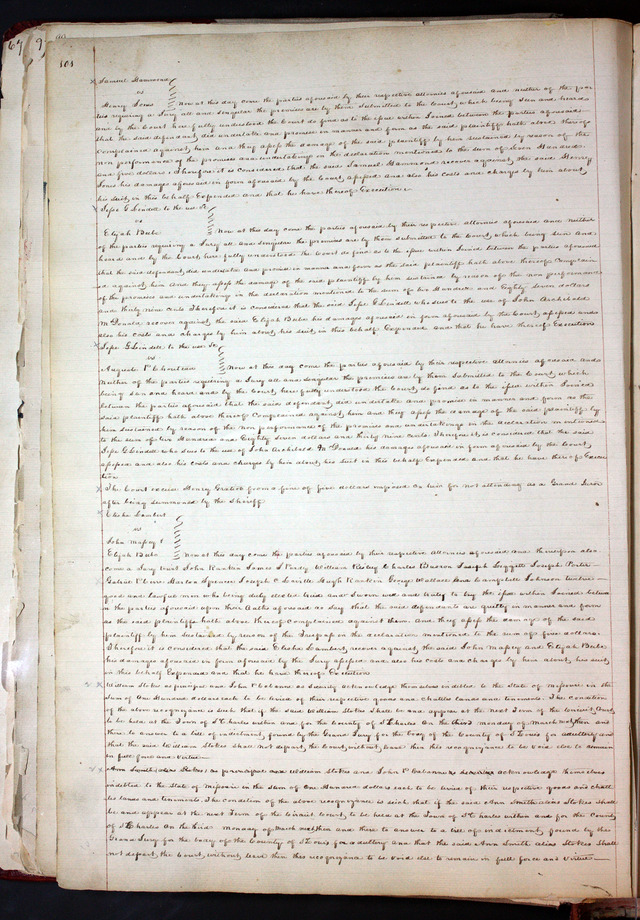 101
Samuel Hammond
vs
Henry Jones Now at this day come the parties aforesaid by their respective attornies aforesaid and neither of the par
ties requiring a Jury all and singular the premises are by them submitted to the Court, which being seen and heard
and by the Court here fully understood the Court do find as to the issue within Joined between the parties aforesaid
that the said defendant, did undertake and promise in manner and form as the said plaintiff hath above thereof
Complained against him and they assess the damage of the said plaintiff by him sustained by reason of the
non performance of the promises and undertakings in the declaration mentioned to the sum of Seven Hundred
and five dollars. Therefore it is considered that the said Samuel Hammond recover against the said Henry
Jones his damages aforesaid in form aforesaid by the Court, assessed and also his costs and charges by him about,
his suit, in this behalf Expended and that he have thereof Execution
Jesse G Lindell to the use &c
vs
Elijah Bebe Now at this day come the parties aforesaid by their respective attornies aforesaid and neither
of the parties requiring a Jury all and singular the premises are by them submitted to the Court, which being seen and
heard and by the Court here fully understood the Court do find as to the issue within Joined between the parties aforesaid
that the said defendant, did undertake and promise in manner and form as the said plaintiff hath above thereof Complain
ed against him and they assess the damage of the said plaintiff by him sustained by reason of the non performance
of the promises and undertakings in the declaration mentioned to the sum of six Hundred and Eighty seven dollars
and thirty nine cents Therefore it is considered that the said Jesse G Lindell who sues to the use of John Archibald
McDonald recover against, the said Elijah Bebe his damages aforesaid in form aforesaid by the Court, assessed and
also his costs and charges by him about, his suit, in this behalf Expended and that he have thereof Execution
Jesse G Lindell to the use &c
vs
Auguste P Chouteau Now at this day come the parties aforesaid by their respective attornies aforesaid and
Neither of the parties requiring a Jury all and singular the premises are by them submitted to the Court, which
being seen and heard and by the Court, here fully understood the Court, do find as to the issue within Joined
between the parties aforesaid that the said defendant, did undertake and promise in manner and form as the
said plaintiff hath above thereof Complained against, him and they assess the damage of the said plaintiff by
him sustained by reason of the non performance of the promises and undertakings in the declaration mentioned
to the sum of six Hundred and Eighty seven dollars and thirty nine cents. Therefore it is considered that the said
Jesse G Lindell who sues to the use of John Archibald McDonald his damages aforesaid in form aforesaid by the Court,
assessed and also his costs and charges by him about, his suit in this behalf Expended and that he have thereof Execu
tion
The Court excuse Henry Gratiot from a fine of five dollars imposed on him for not attending as a Grand Juror
after being summoned by the Sheriff
Elisha Lambert
vs
John Massey &
Elijah Bebe Now at this day come the parties aforesaid by their respective attornies aforesaid and thereupon also
come a Jury to wit John Rankin James Purdy William Charles Joseph Leggett Joseph Porter
Gabriel Barton Spencer Joseph C Lavelle Hugh Rankin George Wallace and Campbell Johnson twelve
good and lawful men who being duly elected tried and Sworn well and truly to try the issue within Joined between
the parties aforesaid upon their Oaths aforesaid do say that the said defendants are guilty in manner and form
as the said plaintiff hath above thereof complained against them. And they assess the damage of the said
plaintiff by him Sustained by reason of the Trespass in the declaration mentioned to the sum of five dollars.
Therefore it is considered that the said Elisha Lambert, recover against, the said John Massey and Elijah Bebe
his damages aforesaid in form aforesaid by the Jury assessed and also his costs and charges by him about, his suit,
in this behalf Expended and that he have thereof Execution
William Stokes as principal and John P Cabanne as Security acknowledge themselves indebted to the State of Missouri in the
Sum of One Hundred dollars each to be levied of their respective goods and chattles lands and tenements. The Condition
of the above recognizance is such that if the said William Stokes Shall be and appear at the next Term of the Circuit Court,
to be held at the Town of St Charles within and for the County of St Charles On the third monday of March next, then and
there to answer to a bill of indictment, found by the Grand Jury for the body of the County of St Louis for adultery and
that the said William Stokes shall not depart, the Court, without, leave then this recognizance to be void else to remain
in full force and virtue
Ann Smith (alias Stokes) as principal and William Stokes and John P Cabanne as securities acknowledge themselves
indebted to the State of Missouri in the Sum of One Hundred dollars each to be levied of their respective goods and chatt
les lands and tenements. The Condition of the above recognizance is such that if the said Ann Smith alias Stokes Shall
be and appear at the next Term of the Circuit Court, to be held at the Town of St Charles within and for the County
of St Charles On the third monday of March next, then and there to answer to a bill of indictment, found by the
Grand Jury for the body of the County of St Louis for adultery and that the said Ann Smith alias Stokes Shall
not depart, the Court, without, leave then this recognizance to be void else to remain in full force and virtue